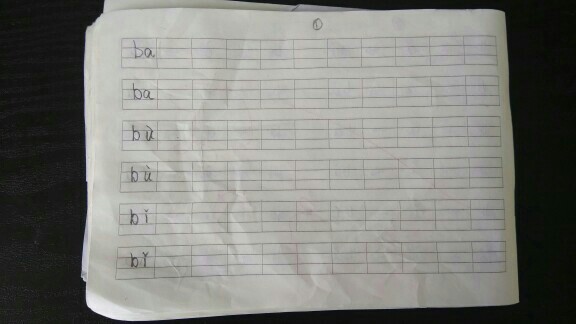 ①
ba
ba
bù
bù
bǐ
bǐ